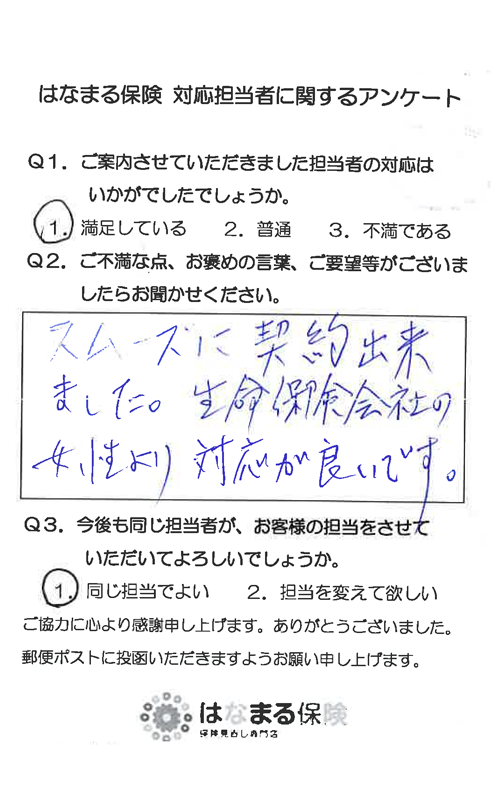 はなまる保険 対応担当者に関するアンケート
Q1．ご案内させていただきました担当者の対応は
いかがでしたでしょうか。
1．満足している　2．普通　3．不満である
Q2．ご不満な点、お褒めの言葉、ご要望等がございま
したらお聞かせください。
スムーズに契約出来
ました。生命保険会社の
女性より対応が良いです。
Q3．今後も同じ担当者が、お客様の担当をさせて
いただいてよろしいでしょうか。
1．同じ担当でよい　2．担当を変えて欲しい
ご協力に心より感謝申し上げます。ありがとうございました。
郵便ポストに投函いただきますようお願い申し上げます。
はなまる保険
保険見直し専門店